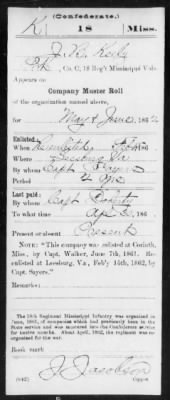 (Confederate.)
K 18 Miss.
Pvt, Co. C, 18 Reg't Mississippi Vols.
Appears on
Company Muster Roll
of the organization named above,
for May & June, 186
Enlisted:
When
Where Leesburg Va
By whom Capt
Period 2
Last paid:
By whom Capt
To what time Apr 30, 186
Present or absent Present
NOTE: "This company was enlisted at Corinth,
Miss., by Capt. Walker, June 7th, 1861. Re-
enlisted at Leesburg, Va., Feb'y 14th, 1862, by
Capt. Sayers."
Remarks:
The 18th Regiment Mississippi Infantry was organized in
June, 1861, of companies which had previously been in the
State service and was mustered into the Confederate service
for twelve months. About April, 1862, the regiment was re-
organized for the war.
Book mark:
(642) J. Jacobson
Copyist.